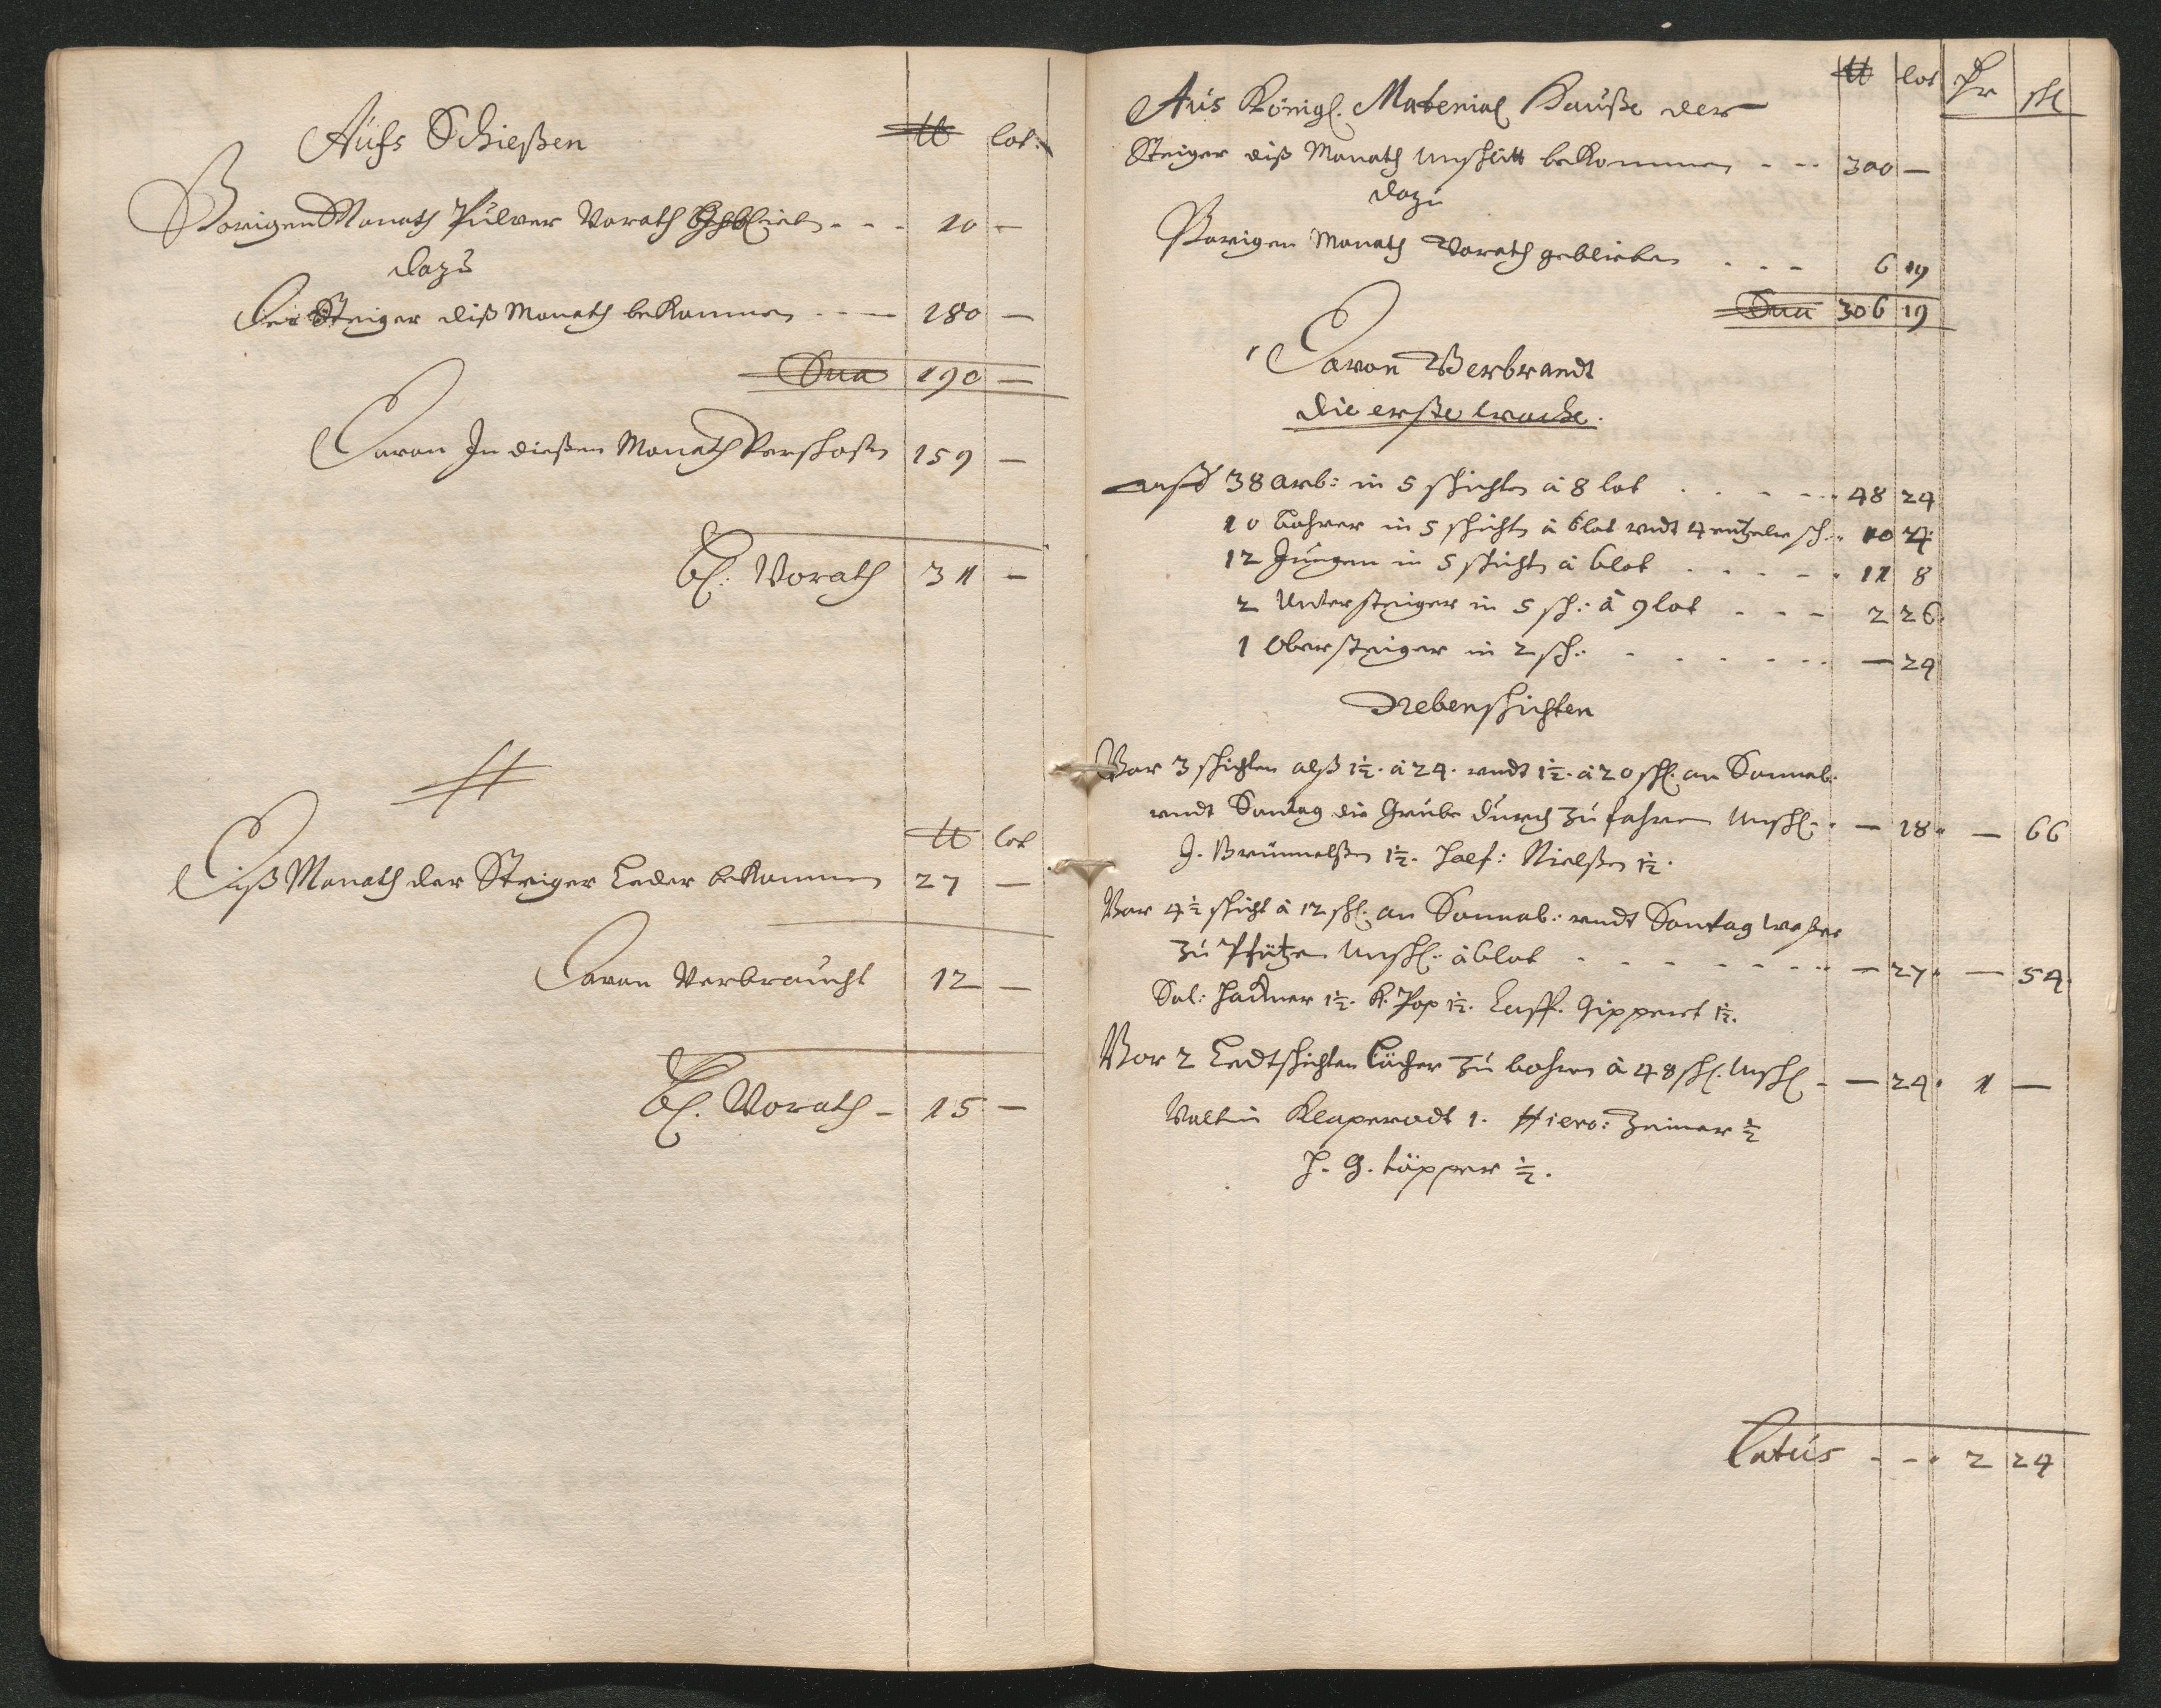 Aufs Schießen ℔ lot.
Vorigen Monath Pulver Vorath bleib - - - 10 —
dazu
Der Steiger diß Monath bekommen - - — 180 —
Sua 190 —
Davon In dießen Monath Verschoßen 159 —
Bl: Vorath 31 —
℔ lot
Diß Monath der Steiger Leder bekommen 27 —
Davon Verbraucht 12 —
Bl. Vorath - 15 —
℔ lot Thr ßl
Aus Königl. Material Hauße der
Steiger diß Monath Unschlitt bekommen - - - 300 —
dazu
Vorigen Monath Vorath geblieben - - - 6 19
Sua 306 19
Davon Verbrandt
die erste woche.
auff 38 Arb: in 5 schichten â 8 lot - - - - 48 24
10 Bohrer in 5 schichten â 6 lot undt 4 eintzeln sch: 10 4
12 Jungen in 5 schichten â 6 lot - - - - 11 8
2 Untersteiger in 5 sch: â 9 lot - - - 2 26
1 Obersteiger in 2 sch: - - - - - — 24
Nebenschichten
Vor 3 schichten alß 1½. â 24. undt 1½. â 20 ßl. an Sonnab:
undt Sontag die Grube durch zu fahren Unschl: — 18 — 66
J. Brunnelßen 1½. Half: Nielßen 1½.
Vor 4½ schicht â 12 ßl. an Sonnab: undt Sontag waßer
zu Pfützen Unschl: â 6 lot - - - - - — 27 — 54
Sal: Hackner 1½. K. Pop 1½. Casp. Gippert 1½.
Vor 2 Ledtschichten Löcher zu bohren â 48 ßl. Unschl - — 24 1 —
Valtin Klaperodt 1. Hiero: Zeimer ½
H. G. Töpper ½.
Latus - - - 2 24